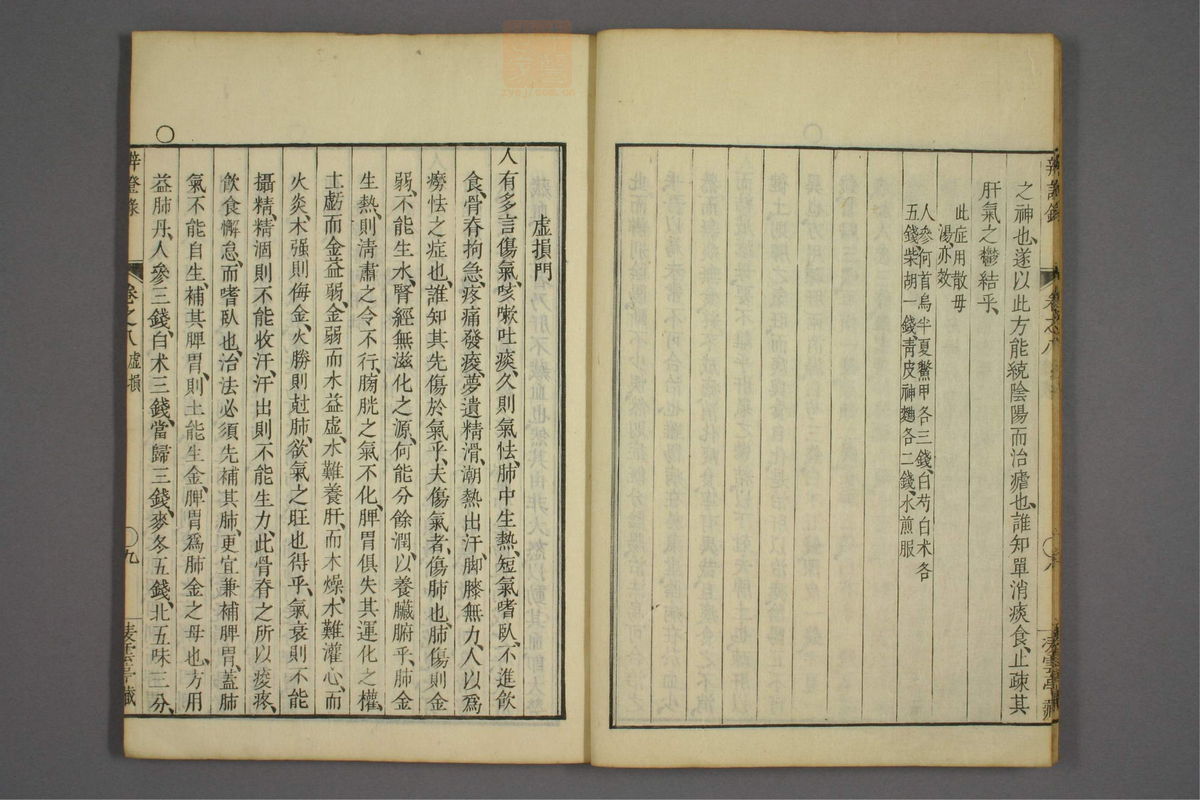 之神也、遂以此方能統陰陽而治瘧也、誰知單消痰食、止疎其
肝氣之鬱結乎、
此症用散母
湯亦效
人參何首烏半夏鱉甲各三錢、白芍白术各
五錢、柴胡一錢、青皮神麯各二錢、水煎服
虛損門
人有多言傷氣、咳嗽吐痰、久則氣怯、肺中生熱、短氣嗜臥、不進飲
食、骨脊拘急、疼痛發痠、夢遺精滑、潮熱出汗、脚膝無力、人以爲
癆怯之症也、誰知其先傷於氣乎、夫傷氣者、傷肺也、肺傷則金
弱、不能生水、腎經無滋化之源、何能分餘潤、以養臟腑乎、肺金
生熱、則清肅之令不行、膀胱之氣不化、脾胃俱失其運化之權、
土虧而金益弱、金弱而水益虛、水難養肝、而木燥、水難灌心、而
火炎、木强則侮金、火勝則尅肺、欲氣之旺也得乎、氣衰則不能
攝精、精涸則不能收汗、汗出則不能生力、此骨脊之所以痠疼、
飲食懈怠、而嗜臥也、治法必須先補其肺、更宜兼補脾胃、蓋肺
氣不能自生、補其脾胃、則土能生金、脾胃爲肺金之母也、方用
益肺丹、人參三錢、白术三錢、當歸三錢、麥冬五錢、北五味三分、
辨證錄
卷之八 虛損
九